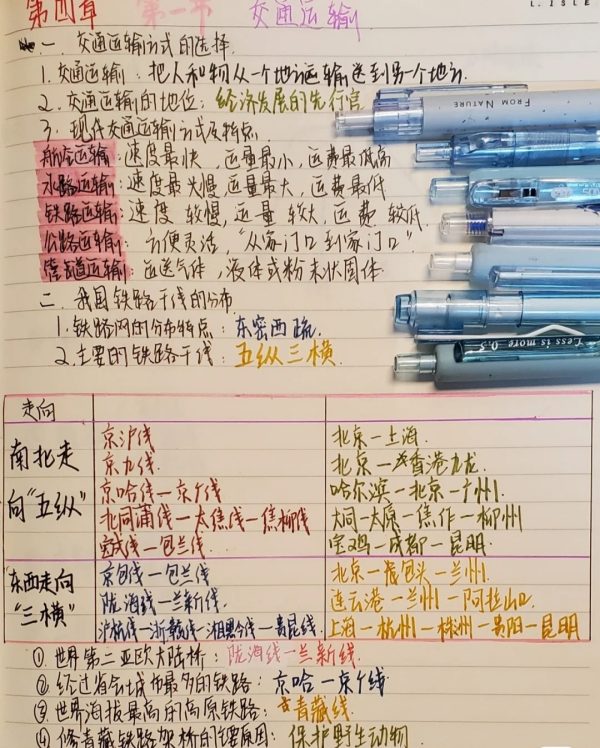 第四章 第一节 交通运输
L.ISLE
一.交通运输方式的选择
1.交通运输:把人和物从一个地方运输送到另一个地方.
2.交通运输的地位:经济发展的先行官
3.现代交通运输方式及特点.
航空运输:速度最快,运量最小,运费最高
水路运输:速度最慢,运量最大,运费最低
铁路运输:速度较慢,运量较大,运费较低.
公路运输:方便灵活,"从家门口到家门口".
管道运输:运送气体,液体或粉末状固体
二.我国铁路干线的分布
1.铁路网的分布特点:东密西疏.
2.主要的铁路干线:五纵三横.
FROM NATURE
Less is more 0.5
走向
南北走向"五纵"
京沪线 北京一上海.
京九线. 北京一香港九龙
京哈线一京广线 哈尔滨一北京一广州.
北同蒲线一太焦线一焦柳线 大同一太原一焦作一柳州
宝成线一包兰线 宝鸡一成都一昆明.
东西走向"三横"
京包线一包兰线 北京一包头一兰州.
陇海线一兰新线. 连云港一兰州一阿拉山口.
沪杭线一浙赣线一湘黔线一贵昆线. 上海一杭州一株洲一贵阳一昆明
①世界第二亚欧大陆桥:陇海线一兰新线.
②经过省会城市最多的铁路:京哈一京广线
③世界海拔最高的高原铁路:青藏线.
④修青藏铁路架桥的主要原因:保护野生动物.